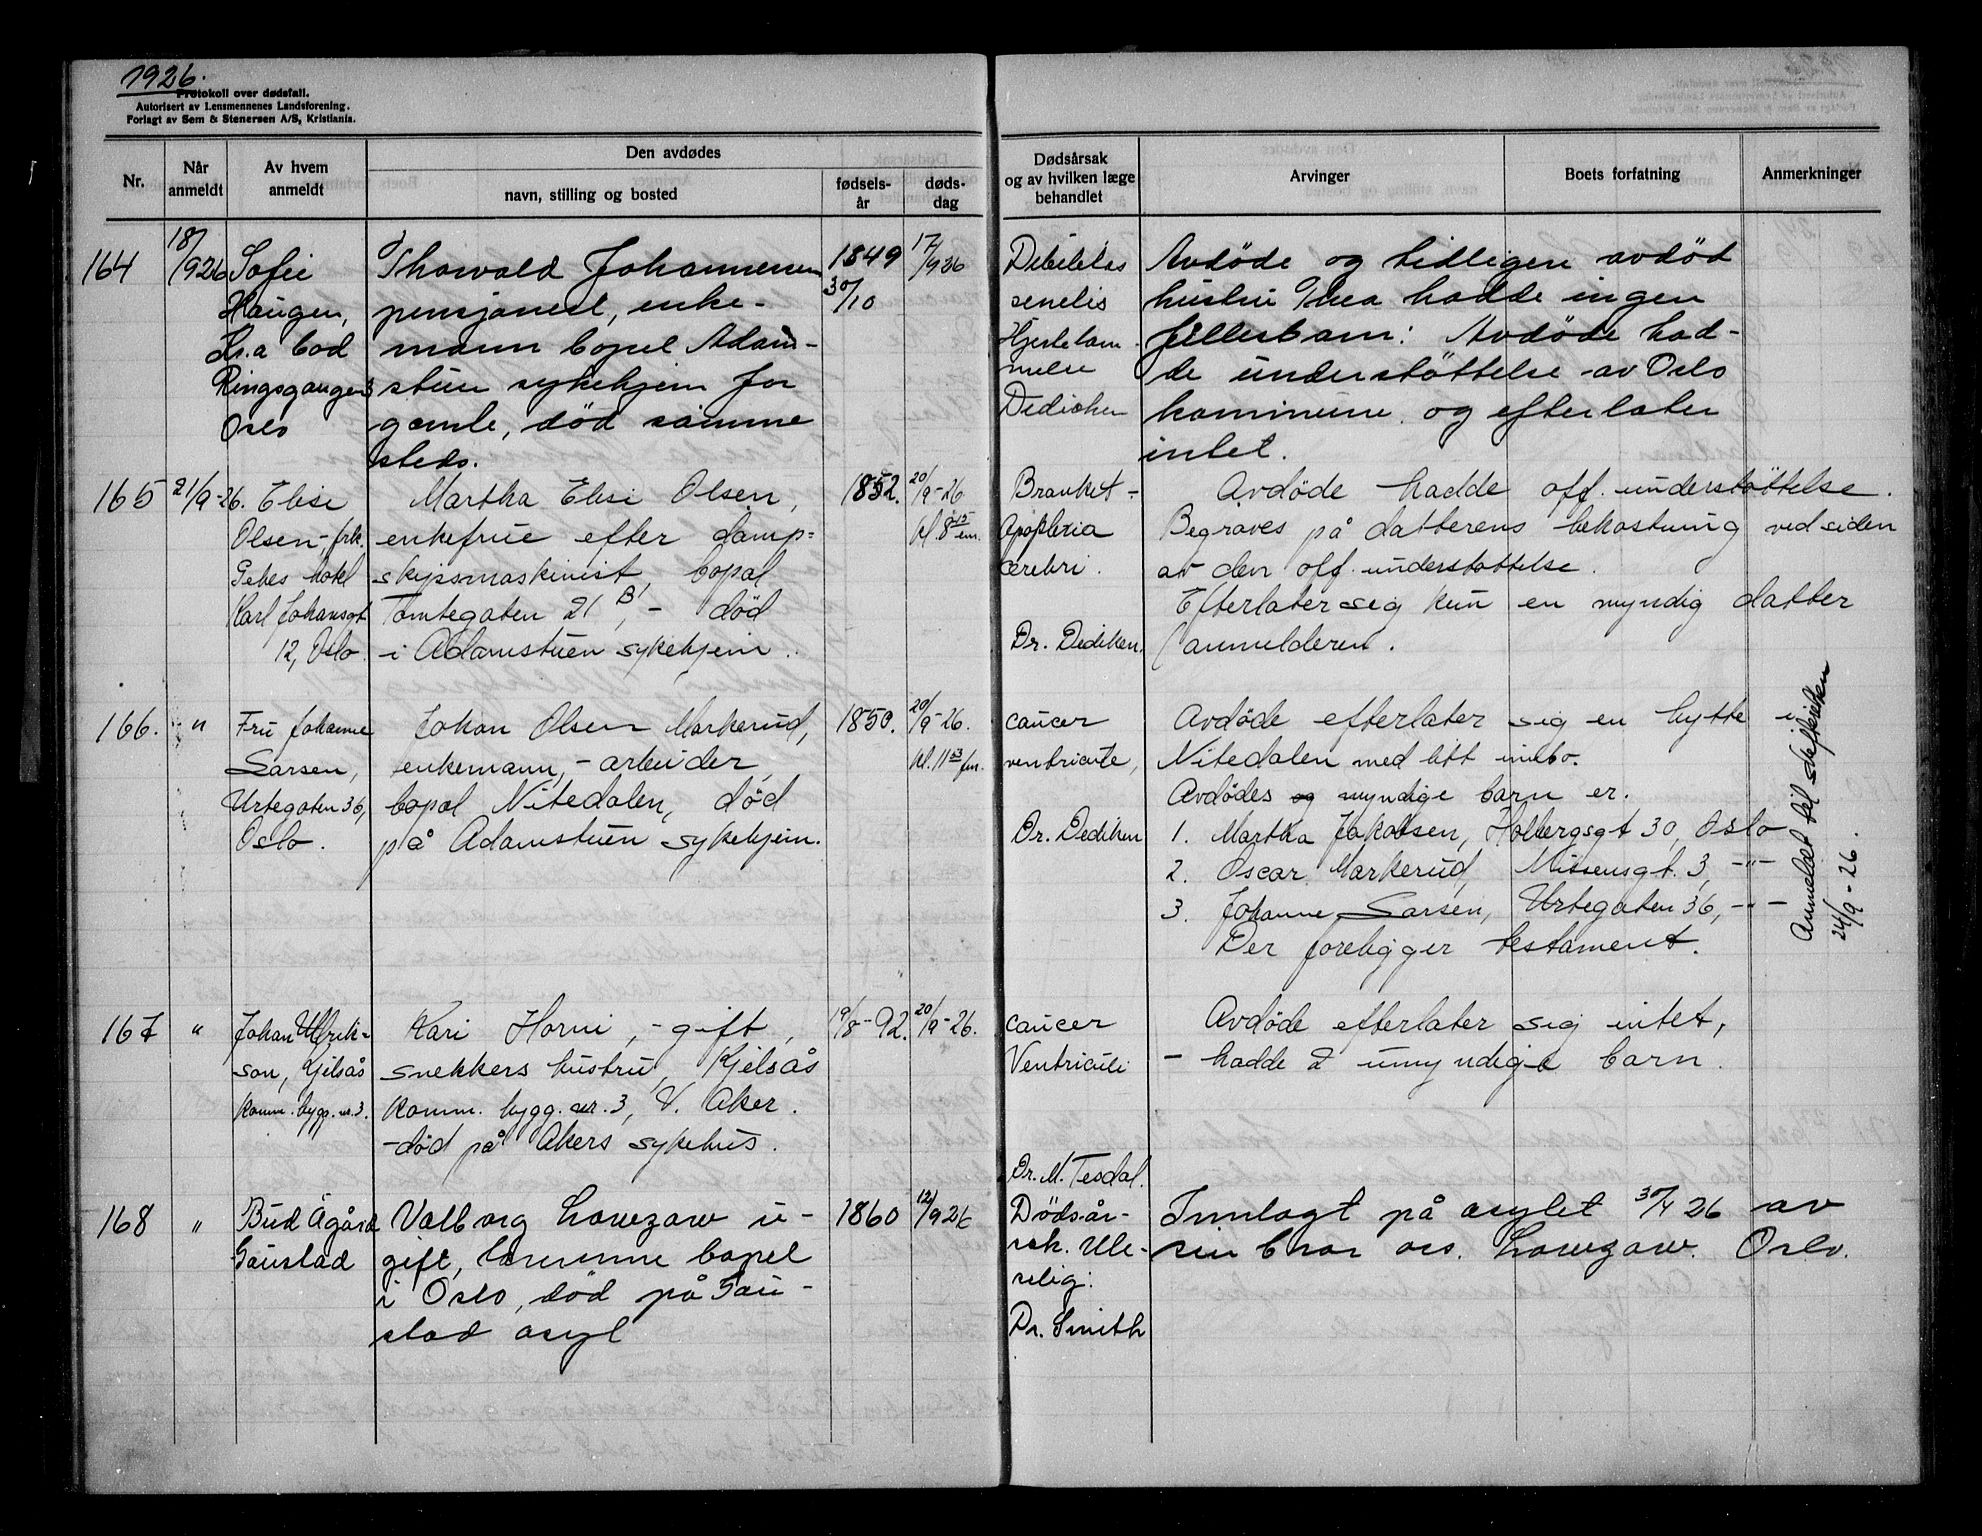 1926.
Protokoll over dødsfall.
Autorisert av Lensmennenes Landsforening.
Forlagt av Sem & Stenersen A/S, Kristiania.
Nr.
Når anmeldt
Av hvem anmeldt
Den avdødes
navn, stilling og bosted
fødsels-år
døds-dag
Dødsårsak og av hvilken læge behandlet
Arvinger
Boets forfatning
Anmerkninger
164
18/926
Sofie
Haugen,
Ringsgangen 3
Oslo
Thorvald Johannesen
pensjonist, enke-
mann bopel Adam-
stuen sykehjem for
gamle, død samme
steds.
1849
30/10
17/926
senilis
Dedichen
Avdøde og tidligere avdød
hustru Thea hadde ingen
fellesbarn: Avdøde had-
de understöttelse av Oslo
kommune og efterlater
intet.
165
21/9-26.
Elise
Olsen, frk.
hotel
Karl Johansgt
12, Oslo.
Martha Elise Olsen,
enkefrue efter damp=
skipsmaskinist, bopal
Tomtegaten 21 B, - død
i Adamstuen sykehjem.
1852.
20/9-26
kl. 8 15 em.
Apoplexia
cerebri.
Dr. Dediken.
Avdøde hadde off. understøttelse.
Begraves på datterens bekostning ved siden
av den off. understøttelse.
Efterlater sig kun en myndig datter
(anmelderen.
166.
"
Fru Johanne
Larsen,
Urtegaten 36,
Oslo.
Johan Olsen Markerud,
enkemann, - arbeider,
bopal Nitedalen, død
på Adamstuen sykehjem.
1850.
20/9-26.
cancer
Dr. Dediken
Avdøde efterlater sig en hytte i
Nitedalen med litt innbo.
Avdødes og myndige barn er.
1. Martha Jakobsen, Holbergsgt 30, Oslo
2. Oscar Markerud, Nissensgt. 3, -"-
3. Johanne Larsen, Urtegaten 36, -"-
Der foreligger testament.
Anmeldt til skifteretten
24/9-26.
167
"
Johan Ulrik=
son, Kjelsås
Komm. bygg. nr. 3.
Kari Horni, - gift,
snekkers hustru, Kjelsås
Komm. bygg. nr. 3, V. Aker.
- død på Akers sykehus.
19/8-92.
20/9-26.
cancer
Ventriculi
Dr. M. Tesdal.
Avdøde efterlater sig intet,
- hadde 2 umyndige barn.
168
"
Bud Ågård
Gaustad
Valborg Lowzow u-
gift, bopel
i Oslo, død på Gau-
stad asyl
1860
12/926
Dødsår-
sak.
Dr. Smith
Innlagt på asylet 30/4 26 av
sin bror ass. Lowzow. Oslo.